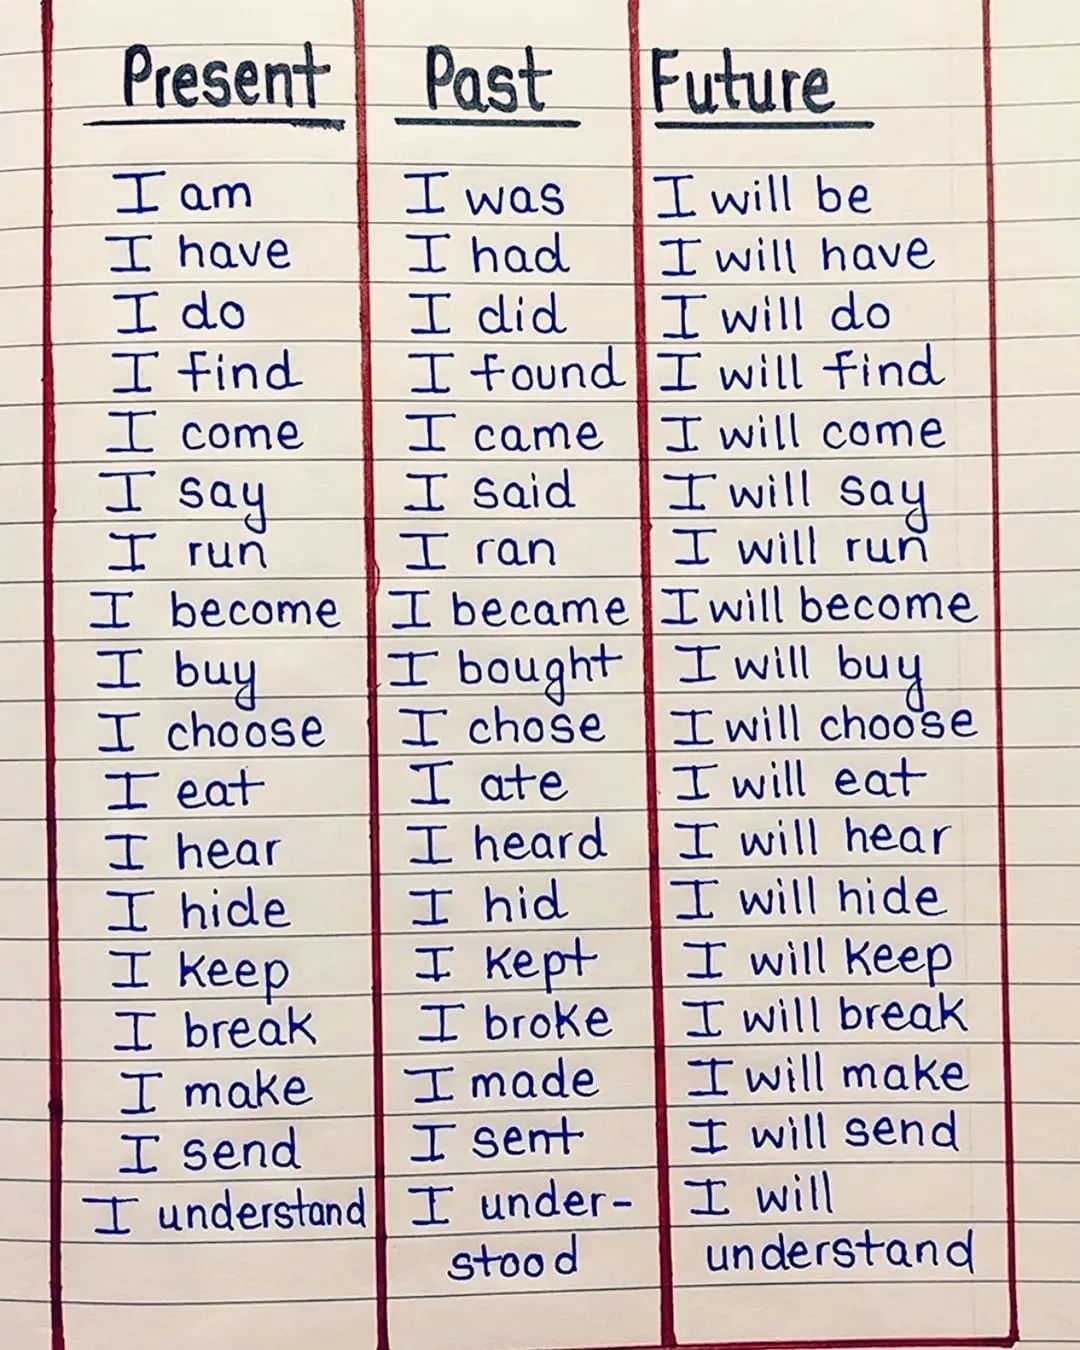 Present Past Future
I am I was I will be
I have I had I will have
I do I did I will do
I find I found I will find
I come I came I will come
I say I said I will say
I run I ran I will run
I become I became I will become
I buy I bought I will buy
I choose I chose I will choose
I eat I ate I will eat
I hear I heard I will hear
I hide I hid I will hide
I keep I kept I will keep
I break I broke I will break
I make I made I will make
I send I sent I will send
I understand I under- I will
stood understand